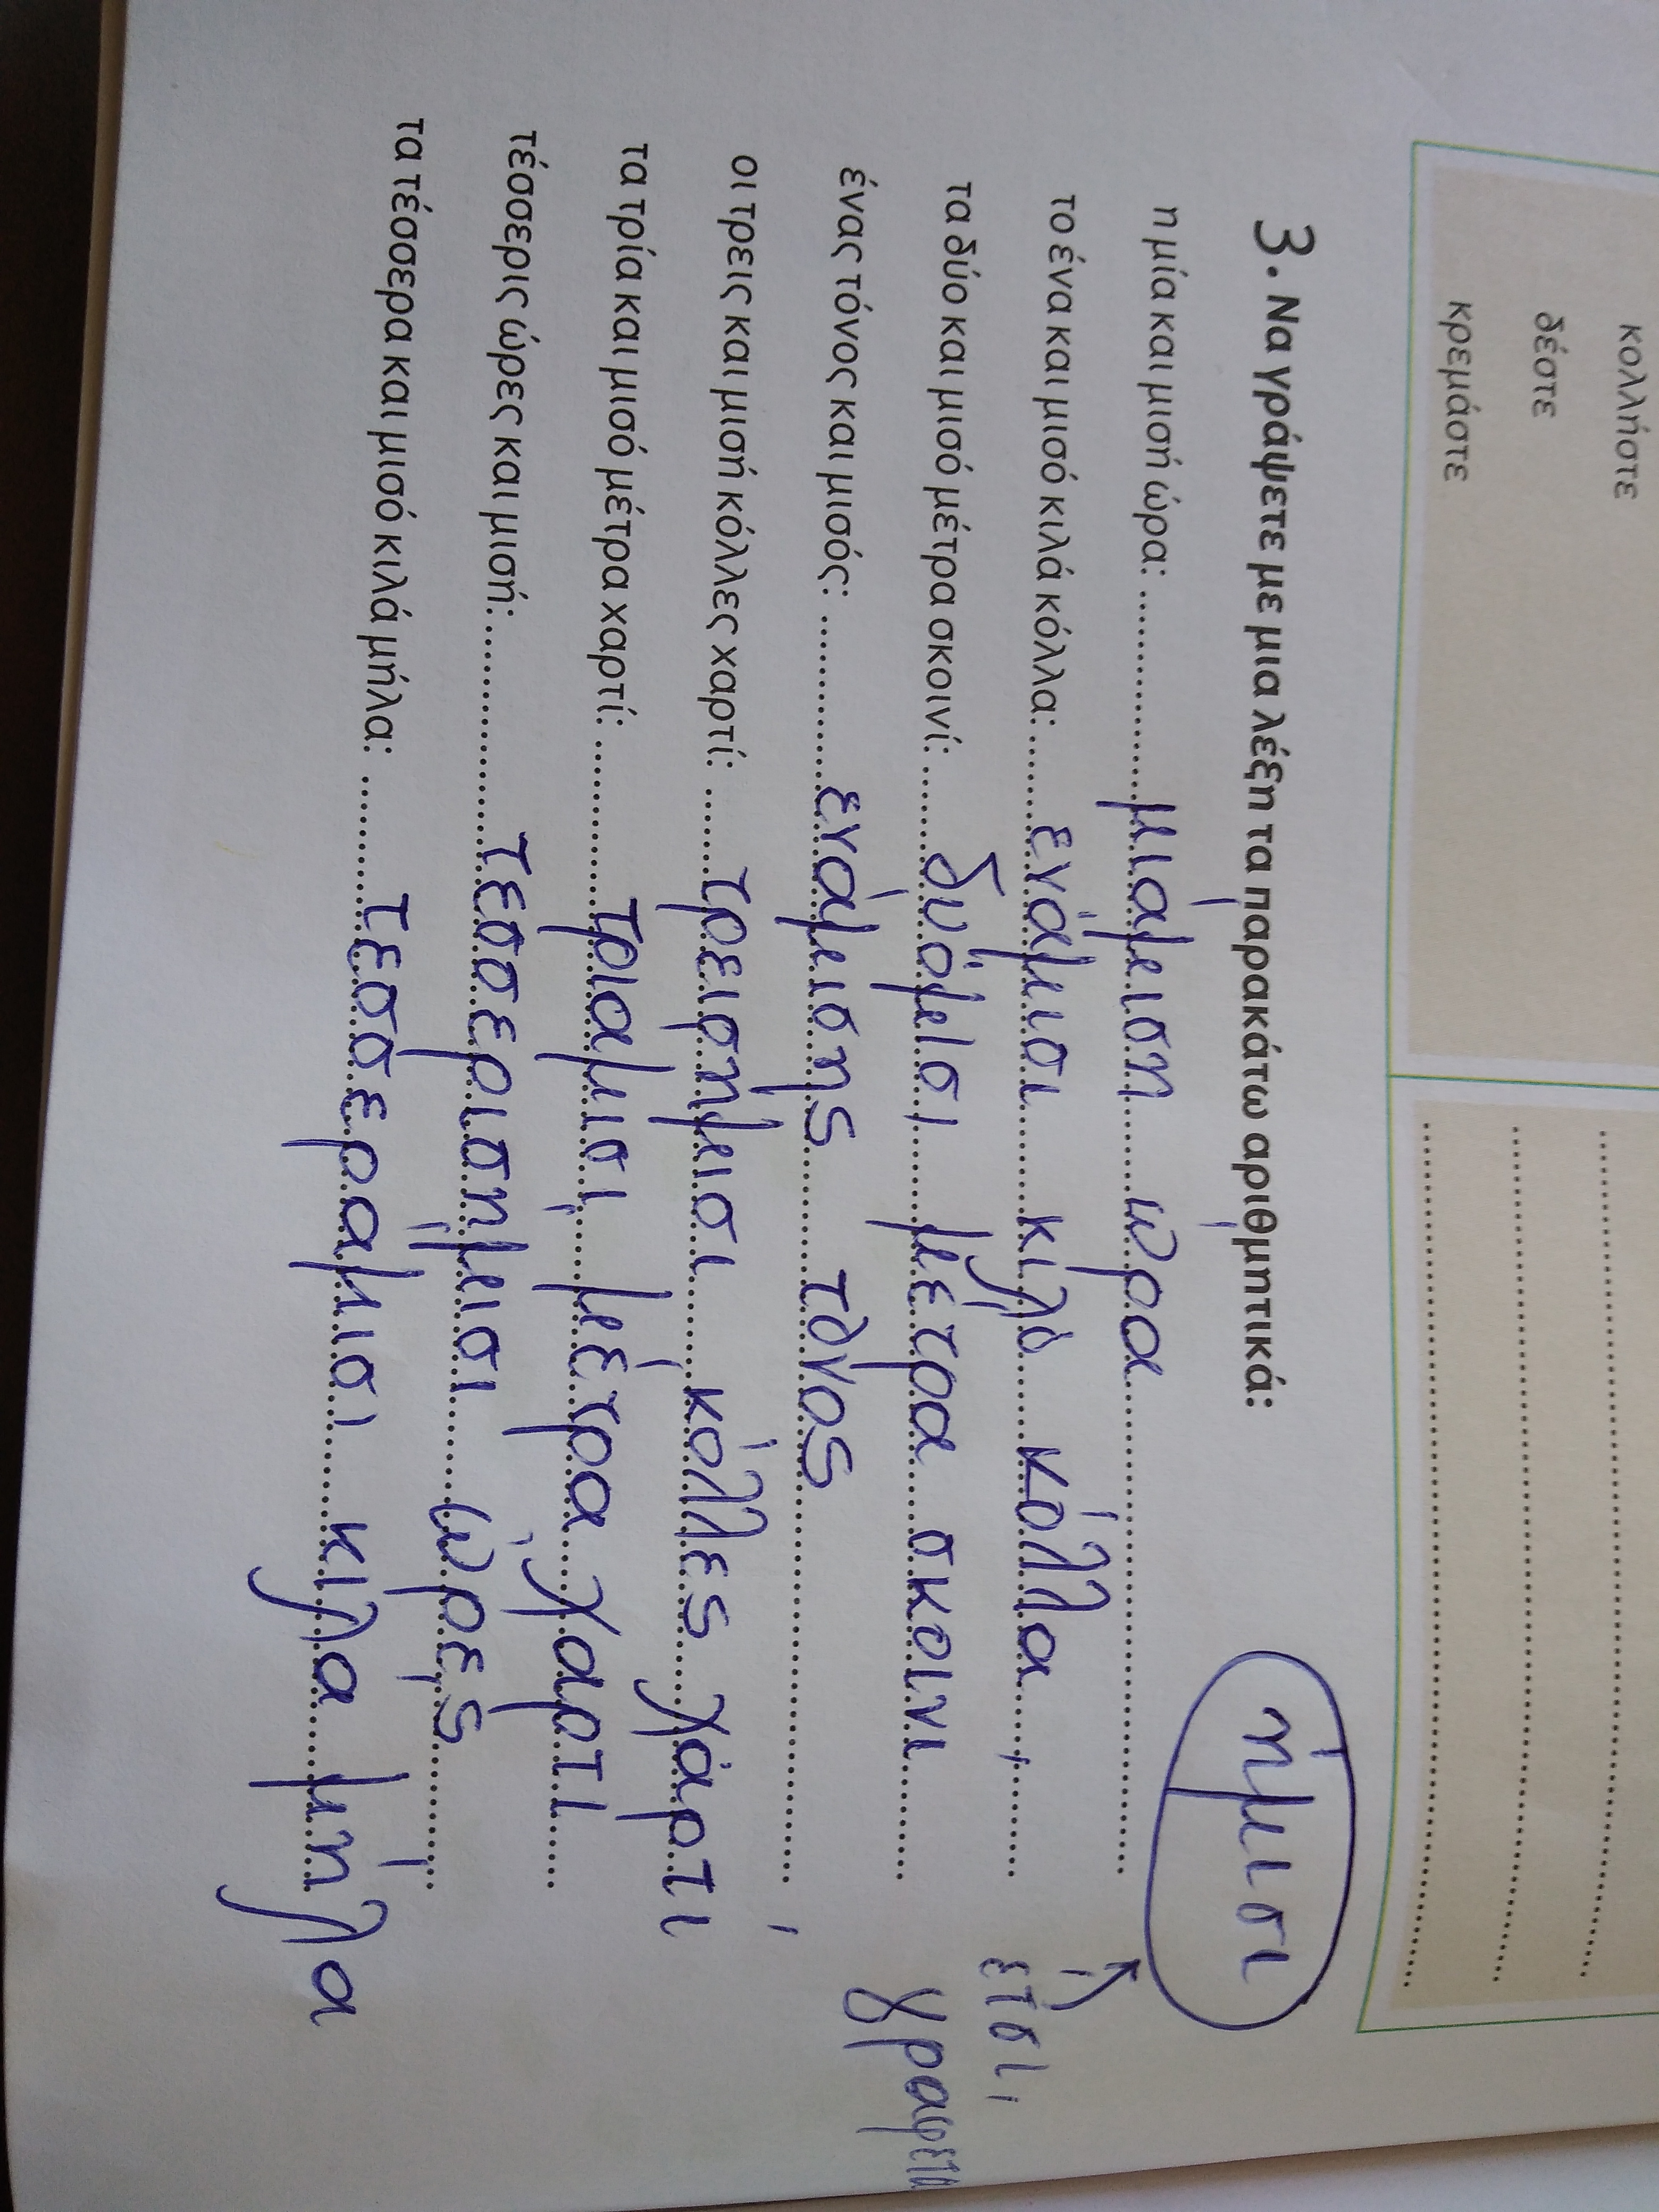 κολλήστε
δέστε
κρεμάστε
3. Να γράψετε με μια λέξη τα παρακάτω αριθμητικά:
ήμισι
η μία και μισή ώρα: μιάμιση ώρα
το ένα και μισό κιλά κόλλα: ενάμισι κιλό κόλλα
έτσι γραφεται
τα δύο και μισό μέτρα σκοινί: δυόμισι μέτρα σκοινι
ένας τόνος και μισός: ενάμισης τόνος
οι τρεις και μισή κόλλες χαρτί: τρεισήμισι κόλλες χάρτι
τα τρία και μισό μέτρα χαρτί: τριαμισι μέτρα χαρτι
τέσσερις ώρες και μισή: τεσσερισήμισι ώρες
τα τέσσερα και μισό κιλά μήλα: τεσσεραμισι κιλα μήλα